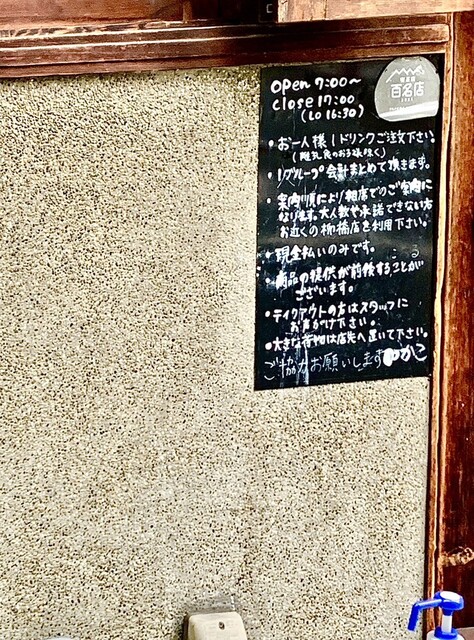 open 7:00〜
close 17:00
(LO 16:30)
百名店
・お一人様1ドリンクご注文下さい。
(離乳食のお子様除く)
・1グループ会計まとめて頂きます。
・案内順により相席でのご案内に
なります。大人数や承諾できない方
お近くの柳橋店を利用下さい。
・現金払いのみです。
・商品の提供が前後することが
ございます。
・テイクアウトの方はスタッフに
お声がけ下さい。
・大きな荷物は店先へ置いて下さい。
ご協力お願いします